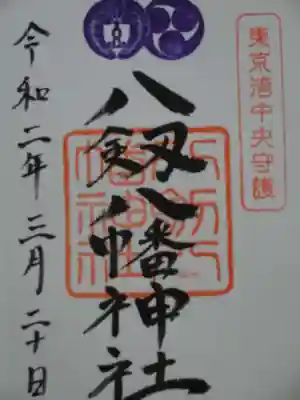 東京湾中央守護
八剱八幡神社
令和二年三月二十日